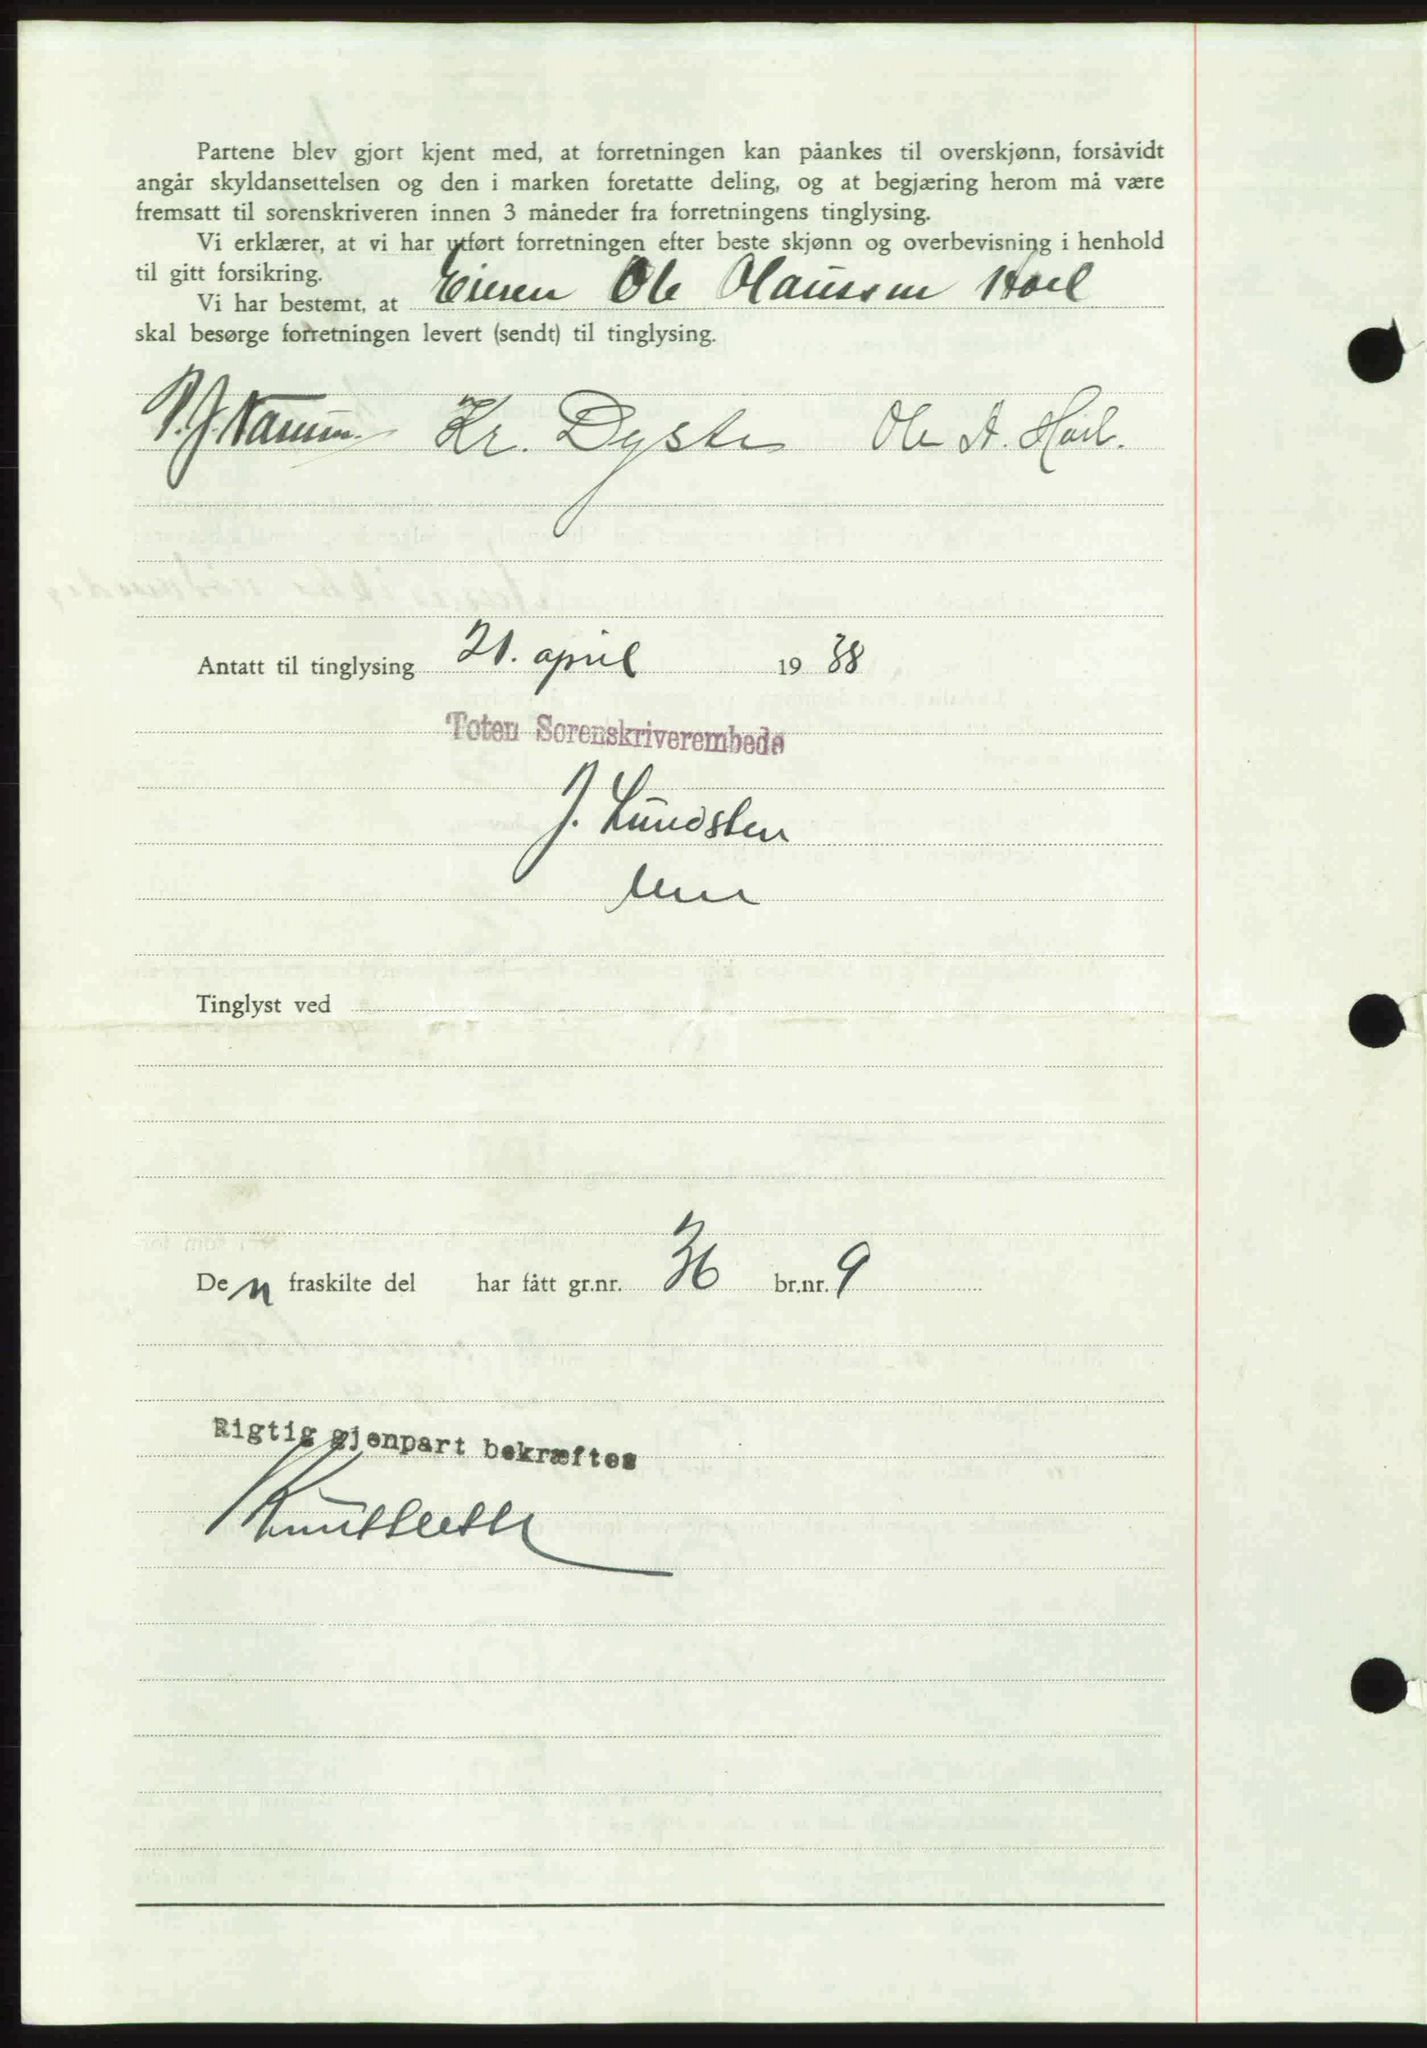 Partene blev gjort kjent med, at forretningen kan påankes til overskjønn, forsåvidt
angår skyldansettelsen og den i marken foretatte deling, og at begjæring herom må være
fremsatt til sorenskriveren innen 3 måneder fra forretningens tinglysing.
Vi erklærer, at vi har utført forretningen efter beste skjønn og overbevisning i henhold
til gitt forsikring.
Vi har bestemt, at Eieren Ole Olaussen Hoel
skal besørge forretningen levert (sendt) til tinglysing.
P. J. Narum. Kr. Dyste Ole A. Hoel.
Antatt til tinglysing 21. april 1938
Toten Sorenskriverembede
J. Lundsten
Tinglyst ved
Den fraskilte del har fått gr.nr. 36 br.nr. 9
Rigtig gjenpart bekræftes